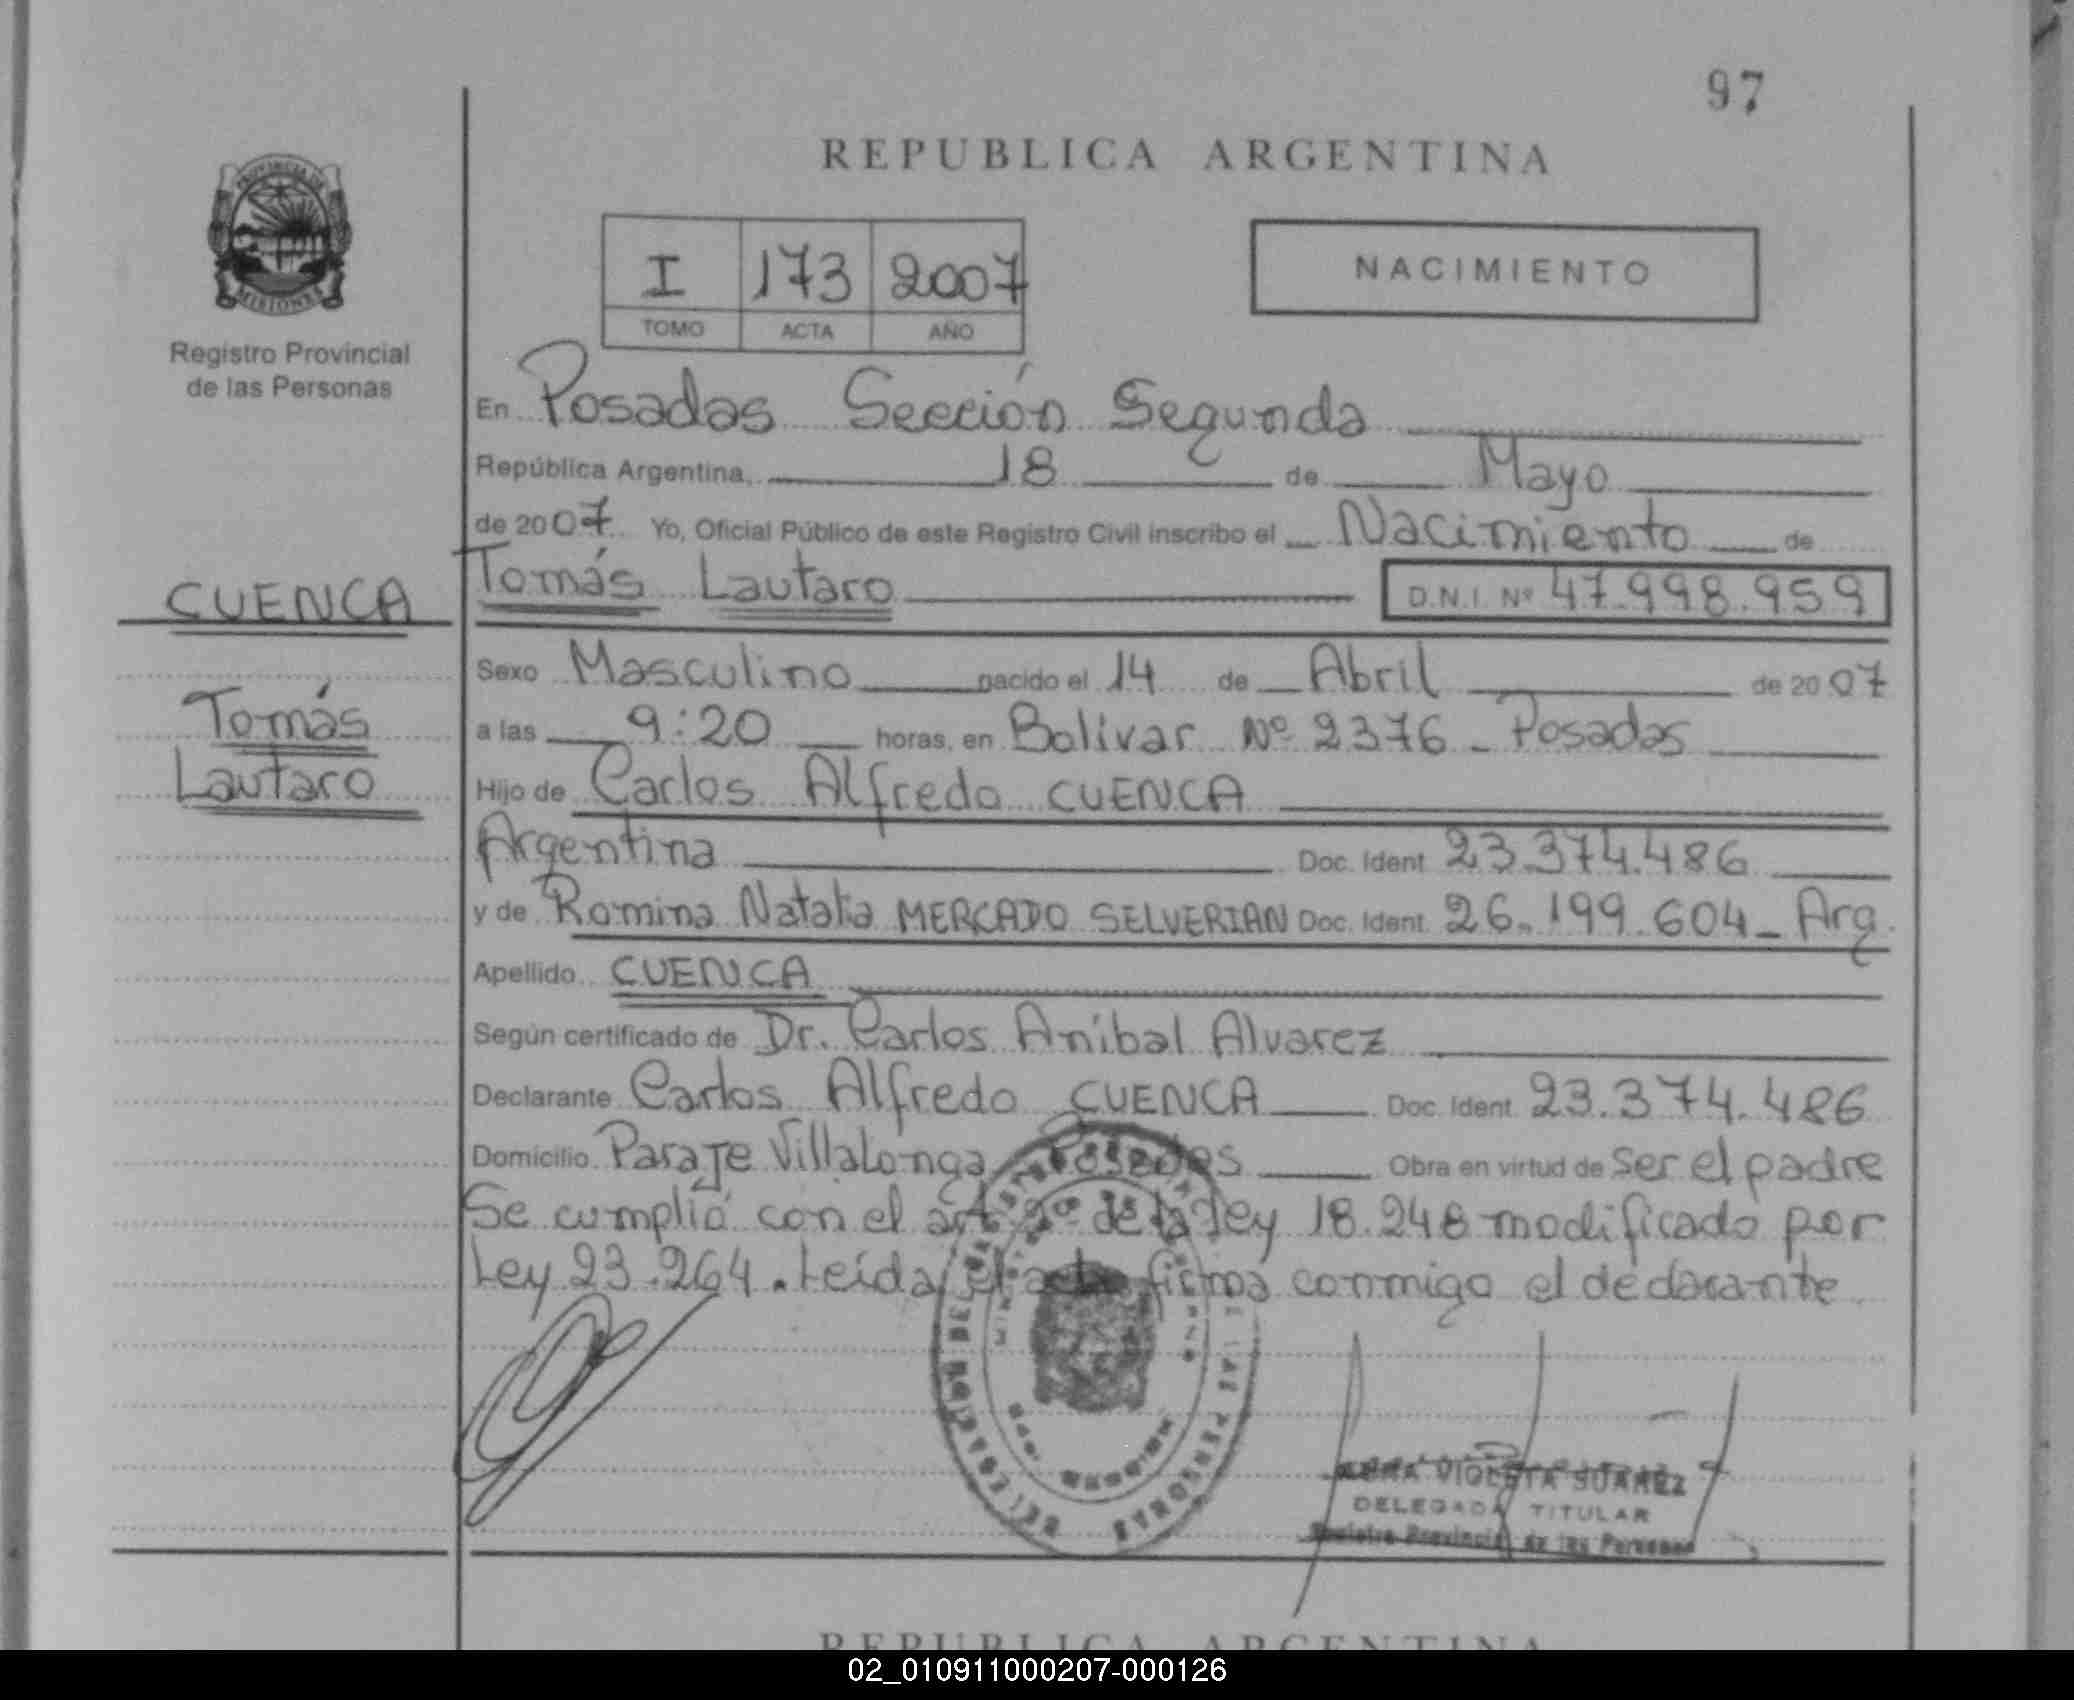 97
REPUBLICA ARGENTINA
PROVINCIA DE
MISIONES
Registro Provincial
de las Personas
I 173 2007
TOMO ACTA AÑO
NACIMIENTO
En Posadas Sección Segunda
República Argentina, 18 de Mayo
de 2007 Yo, Oficial Público de este Registro Civil inscribo el Nacimiento de
CUENCA
Tomás Lautaro D.N.I. Nº 47.998.959
Sexo Masculino nacido el 14 de Abril de 2007
Tomás
a las 9:20 horas, en Bolivar Nº 2376 - Posadas
Lautaro
Hijo de Carlos Alfredo CUENCA
Argentina Doc. Ident 23.374.486
y de Romina Natalia MERCADO SELVERIAN Doc. Ident. 26.199.604 - Arg.
Apellido CUENCA
Según certificado de Dr. Carlos Aníbal Alvarez
Declarante Carlos Alfredo CUENCA Doc. Ident. 23.374.486
Domicilio Paraje Villalonga, Posadas Obra en virtud de Ser el padre
Se cumplió con el art. de la ley 18.248 modificado por
Ley 23.264. Leída el acta firma conmigo el declarante
VIOLETA SUAREZ
DELEGADA TITULAR
Registro Provincial de las Personas
REPUBLICA ARGENTINA
02_010911000207-000126